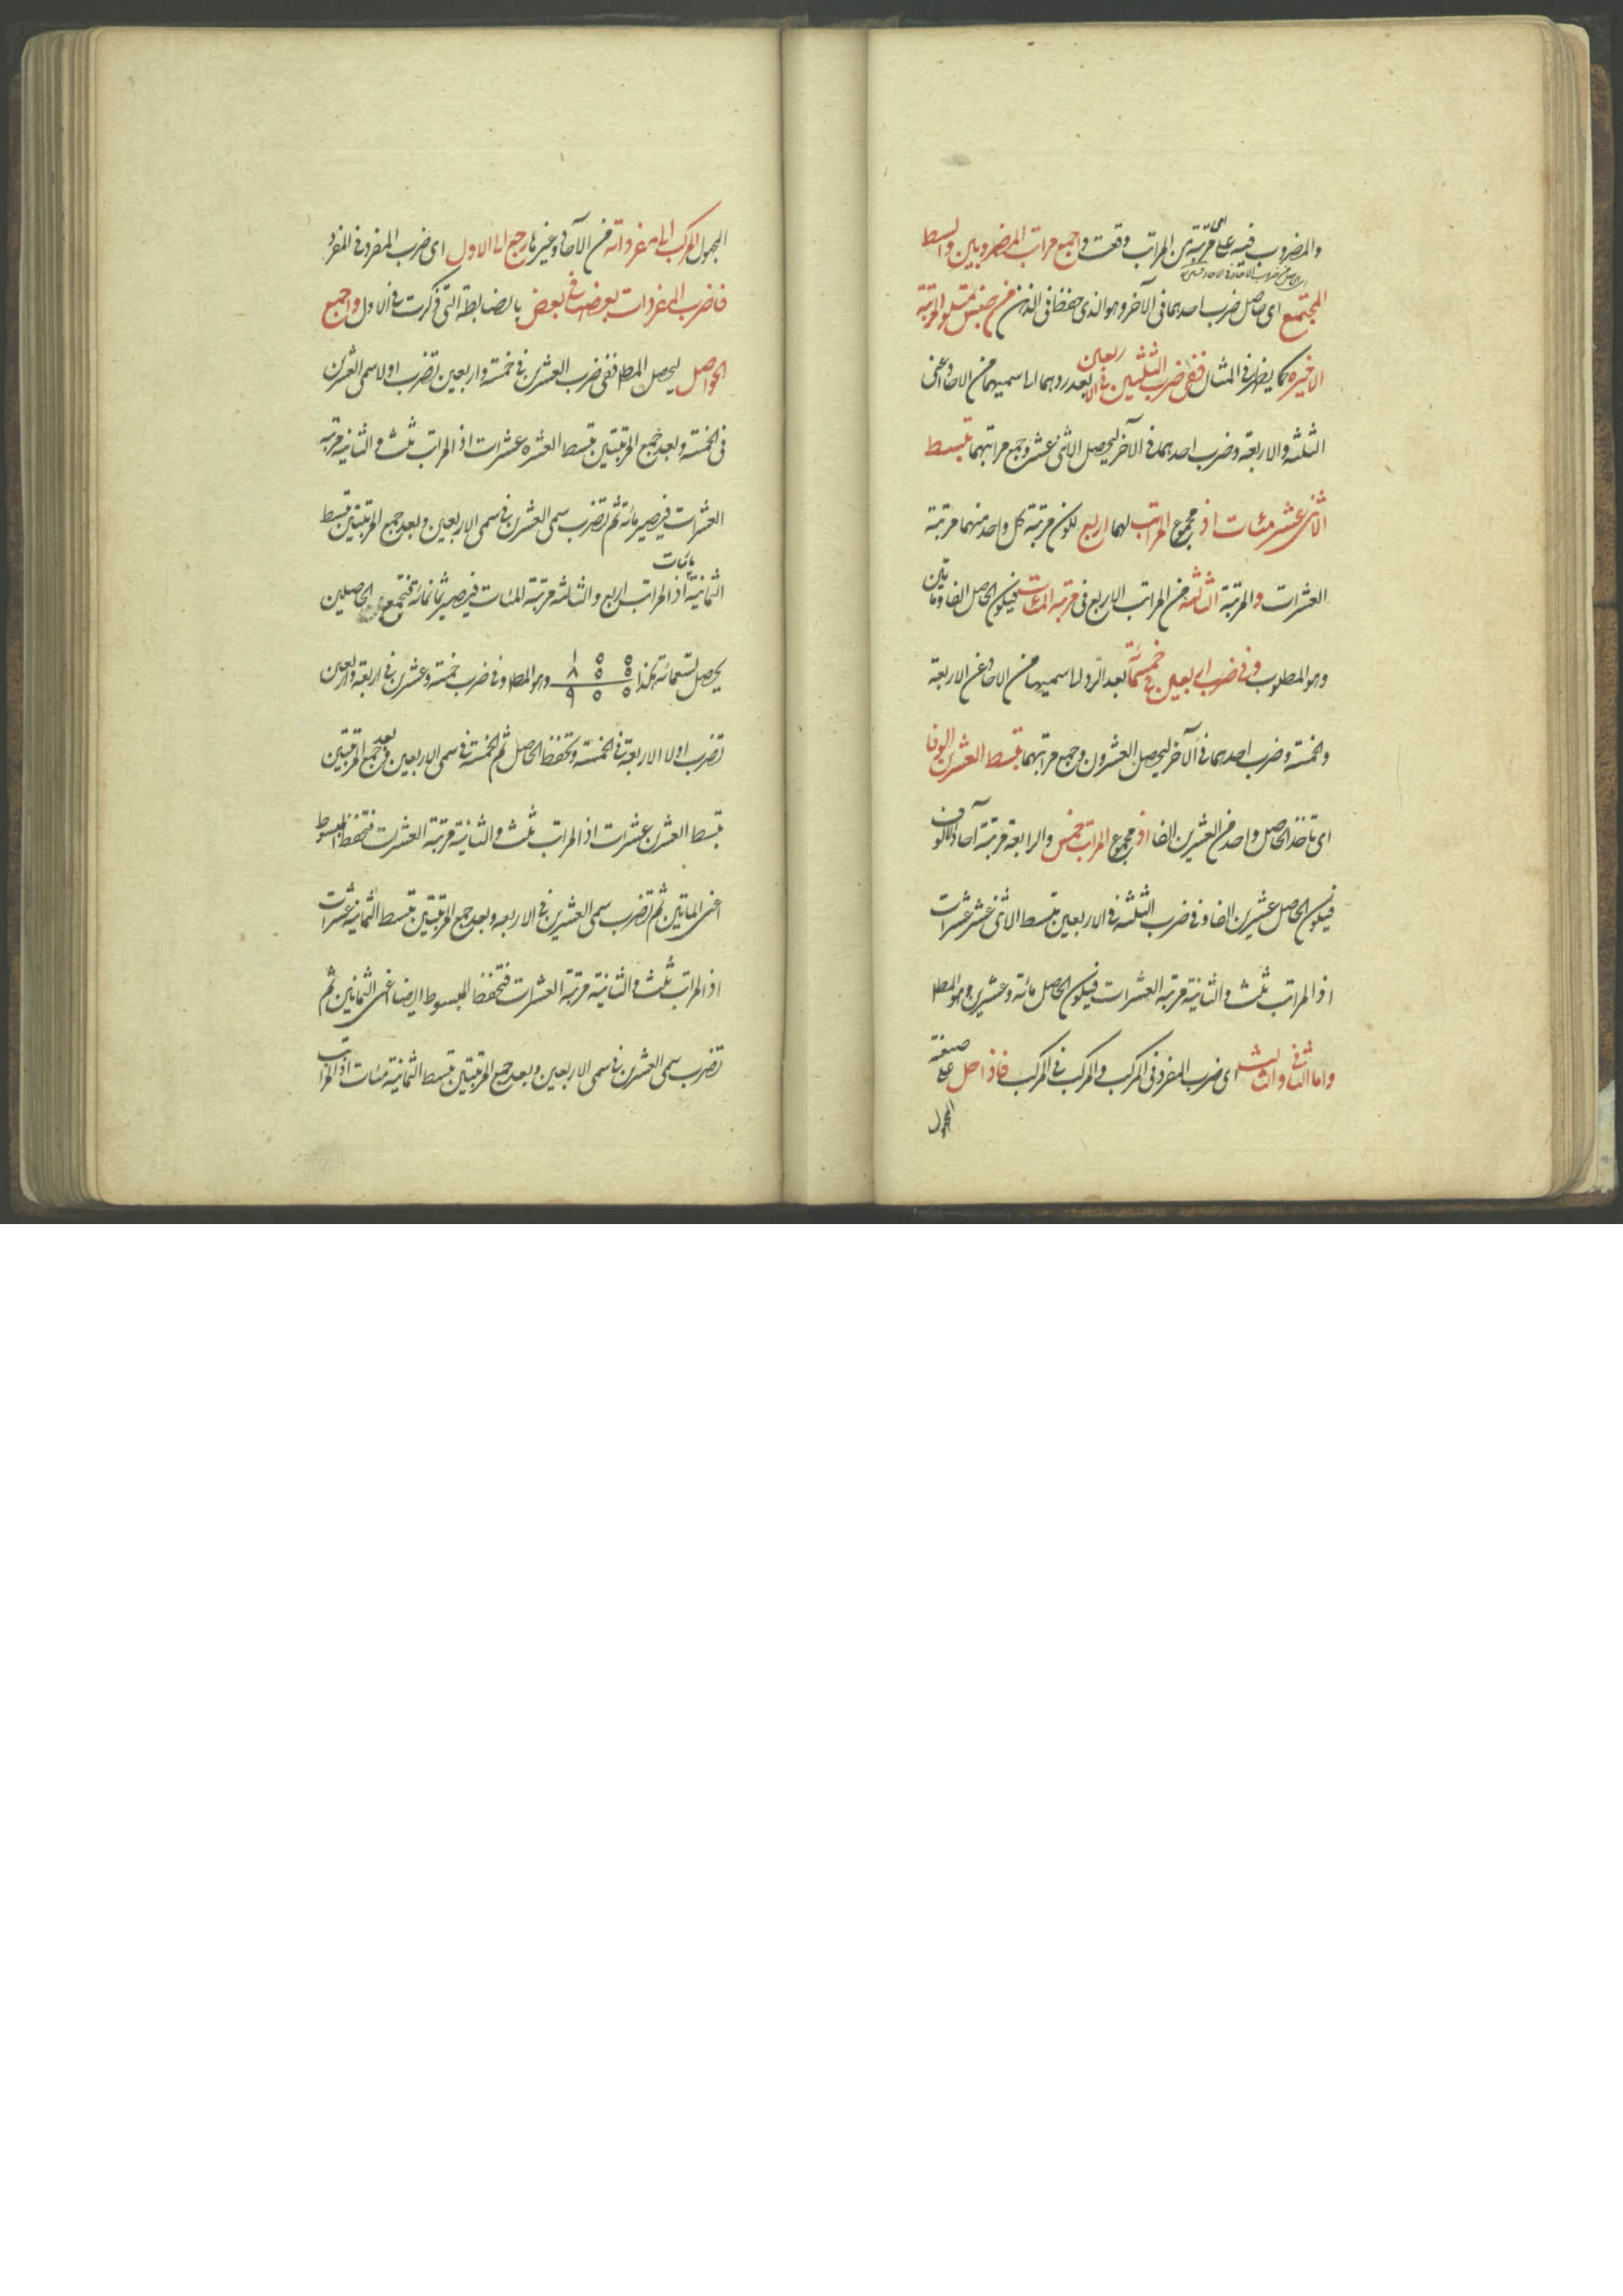 والمضروب فيه على اى مرتبة من المراتب وقعت واجمع مراتب المضروبين وابسط
المجتمع اى حاصل ضرب احدهما فى الآخر وهو الذى حفظ فى الذهن من جنس متلو المرتبة
الاخيرة كما يظهر فى المثال ففى ضرب الثلثين فى الاربعين بعد ردهما الى سميهما من الاحاد اعنى
الثلثة والاربعة وضرب احدهما فى الآخر ليحصل الاثنى عشر وجمع مراتبهما تبسط
الاثنى عشر مئات اذ مجموع المراتب لهما اربع لكون مرتبة كل واحد منهما مرتبة
العشرات والمرتبة الثالثة من المراتب الاربع فى مرتبة المئات فيكون الحاصل الفا ومأتين
وهو المطلوب وفى ضرب اربعين فى خمسمائة بعد الرد الى سميهما من الاحاد اعنى الاربعة
والخمسة وضرب احدهما فى الآخر ليحصل العشرون وجمع مراتبهما تبسط العشرين الوفا
اى تاخذ لحاصل واحد من العشرين الفا اذ مجموع المراتب خمس والرابعة مرتبة آحاد الالوف
فيكون الحاصل عشرين الفا وفى ضرب الثلثة فى الاربعين تبسط الاثنى عشر عشرات
اذ المراتب ثلث والثانية مرتبة العشرات فيكون الحاصل مائة وعشرين وهو المط
واما الثانى والثالث اى ضرب المفرد فى المركب والمركب فى المركب فاذا حل على صيغة
المجهول المركب الى مفرداته من الآحاد وغيرها رجع الى الاول اى ضرب المفرد فى المفرد
فاضرب المفردات بعضها فى بعض بالضابطة التى ذكرت فى الاول واجمع
الحواصل ليحصل المط ففى ضرب العشرين فى خمسة واربعين تضرب اولا سمى العشرين
فى الخمسة وبعد جمع المرتبتين تبسط العشرة عشرات اذ المراتب ثلث والثانية مرتبة
العشرات فيصير مائة ثم تضرب سمى العشرين فى سمى الاربعين وبعد جمع المرتبتين تبسط
الثمانية مئات اذ المراتب اربع والثالثة مرتبة المئات فيصير ثمانمائة فتجمع الحاصلين
يحصل تسعمائة هكذا ١٥٥ ٨٥٥ ٩٥٥ وهو المط وفى ضرب خمسة وعشرين فى اربعة واربعين
تضرب اولا الاربعة فى الخمسة وتحفظ الحاصل ثم الخمسة فى سمى الاربعين وبعد جمع المرتبتين
تبسط العشرين عشرات اذ المراتب ثلث والثانية مرتبة العشرات فتحفظ المبسوط
اعنى المأتين ثم تضرب سمى العشرين فى الاربعة وبعد جمع المرتبتين تبسط الثمانية عشرات
اذ المراتب ثلث والثانية مرتبة العشرات فتحفظ المبسوط ايضا اعنى الثمانين ثم
تضرب سمى العشرين فى سمى الاربعين وبعد جمع المرتبتين تبسط الثمانية مئات اذ المراتب